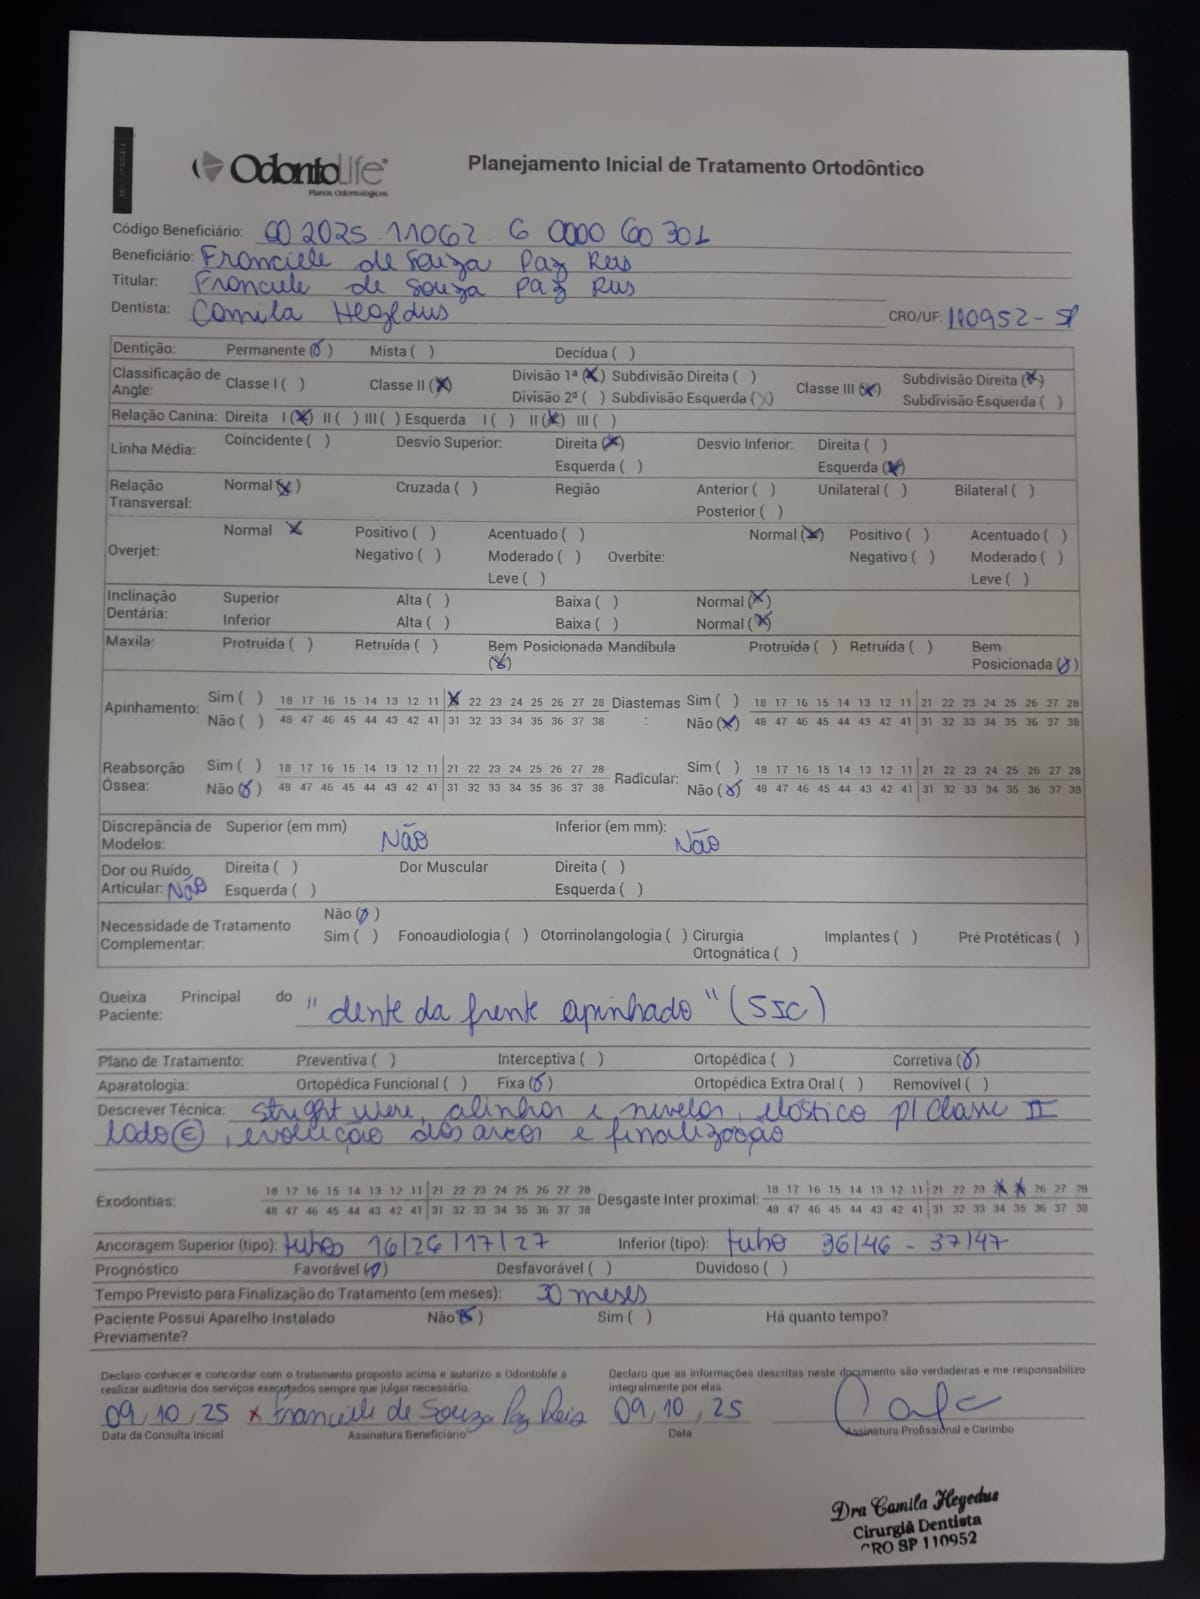 OdontoLife
Planos Odontológicos
Planejamento Inicial de Tratamento Ortodôntico
Código Beneficiário: 00 2025.11062.6 0000 60 301
Beneficiário: Franciele de Souza Paz Reis
Titular: Franciele de Souza Paz Reis
Dentista: Camila Hegedus CRO/UF: 110952-SP
Dentição: Permanente (x) Mista ( ) Decídua ( )
Classificação de Angle: Classe I ( ) Classe II (x) Divisão 1ª (x) Subdivisão Direita ( ) Classe III (x) Subdivisão Direita (x)
Divisão 2ª ( ) Subdivisão Esquerda (x) Subdivisão Esquerda ( )
Relação Canina: Direita I (x) II ( ) III ( ) Esquerda I ( ) II (x) III ( )
Linha Média: Coincidente ( ) Desvio Superior: Direita (x) Desvio Inferior: Direita ( )
Esquerda ( ) Esquerda (x)
Relação Transversal: Normal (x) Cruzada ( ) Região Anterior ( ) Unilateral ( ) Bilateral ( )
Posterior ( )
Overjet: Normal x Positivo ( ) Acentuado ( ) Normal (x) Positivo ( ) Acentuado ( )
Negativo ( ) Moderado ( ) Overbite: Negativo ( ) Moderado ( )
Leve ( ) Leve ( )
Inclinação Dentária: Superior Alta ( ) Baixa ( ) Normal (x)
Inferior Alta ( ) Baixa ( ) Normal (x)
Maxila: Protruída ( ) Retruída ( ) Bem Posicionada (x) Mandíbula Protruída ( ) Retruída ( ) Bem Posicionada (x)
Apinhamento: Sim ( ) 18 17 16 15 14 13 12 11 x 22 23 24 25 26 27 28 Diastemas: Sim ( ) 18 17 16 15 14 13 12 11 21 22 23 24 25 26 27 28
Não ( ) 48 47 46 45 44 43 42 41 31 32 33 34 35 36 37 38 Não (x) 48 47 46 45 44 43 42 41 31 32 33 34 35 36 37 38
Reabsorção Óssea: Sim ( ) 18 17 16 15 14 13 12 11 21 22 23 24 25 26 27 28 Radicular: Sim ( ) 18 17 16 15 14 13 12 11 21 22 23 24 25 26 27 28
Não (x) 48 47 46 45 44 43 42 41 31 32 33 34 35 36 37 38 Não (x) 48 47 46 45 44 43 42 41 31 32 33 34 35 36 37 38
Discrepância de Modelos: Superior (em mm) Não Inferior (em mm): Não
Dor ou Ruído Articular: Não Direita ( ) Dor Muscular Direita ( )
Esquerda ( ) Esquerda ( )
Necessidade de Tratamento Complementar: Não (x)
Sim ( ) Fonoaudiologia ( ) Otorrinolangologia ( ) Cirurgia Ortognática ( ) Implantes ( ) Pré Protéticas ( )
Queixa Principal do Paciente: "dente da frente apinhado" (SIC)
Plano de Tratamento: Preventiva ( ) Interceptiva ( ) Ortopédica ( ) Corretiva (x)
Aparatologia: Ortopédica Funcional ( ) Fixa (x) Ortopédica Extra Oral ( ) Removível ( )
Descrever Técnica: Stright Were, alinhar e nivelar, elástico p/ Classe II
lado (E), evolução dos arcos e finalização
Exodontias: 18 17 16 15 14 13 12 11 21 22 23 24 25 26 27 28 Desgaste Inter proximal: 18 17 16 15 14 13 12 11 21 22 23 x x 26 27 28
48 47 46 45 44 43 42 41 31 32 33 34 35 36 37 38 48 47 46 45 44 43 42 41 31 32 33 34 35 36 37 38
Ancoragem Superior (tipo): tubos 16/26/17/27 Inferior (tipo): tubo 36/46 - 37/47
Prognóstico Favorável (x) Desfavorável ( ) Duvidoso ( )
Tempo Previsto para Finalização do Tratamento (em meses): 30 meses
Paciente Possui Aparelho Instalado Previamente? Não (x) Sim ( ) Há quanto tempo?
Declaro conhecer e concordar com o tratamento proposto acima e autorizo a Odontolife a realizar auditoria dos serviços executados sempre que julgar necessário.
Declaro que as informações descritas neste documento são verdadeiras e me responsabilizo integralmente por elas.
09, 10, 25 x Franciele de Souza Paz Reis 09, 10, 25
Data da Consulta Inicial Assinatura Beneficiário Data Assinatura Profissional e Carimbo
Dra Camila Hegedus
Cirurgiã Dentista
CRO SP 110952